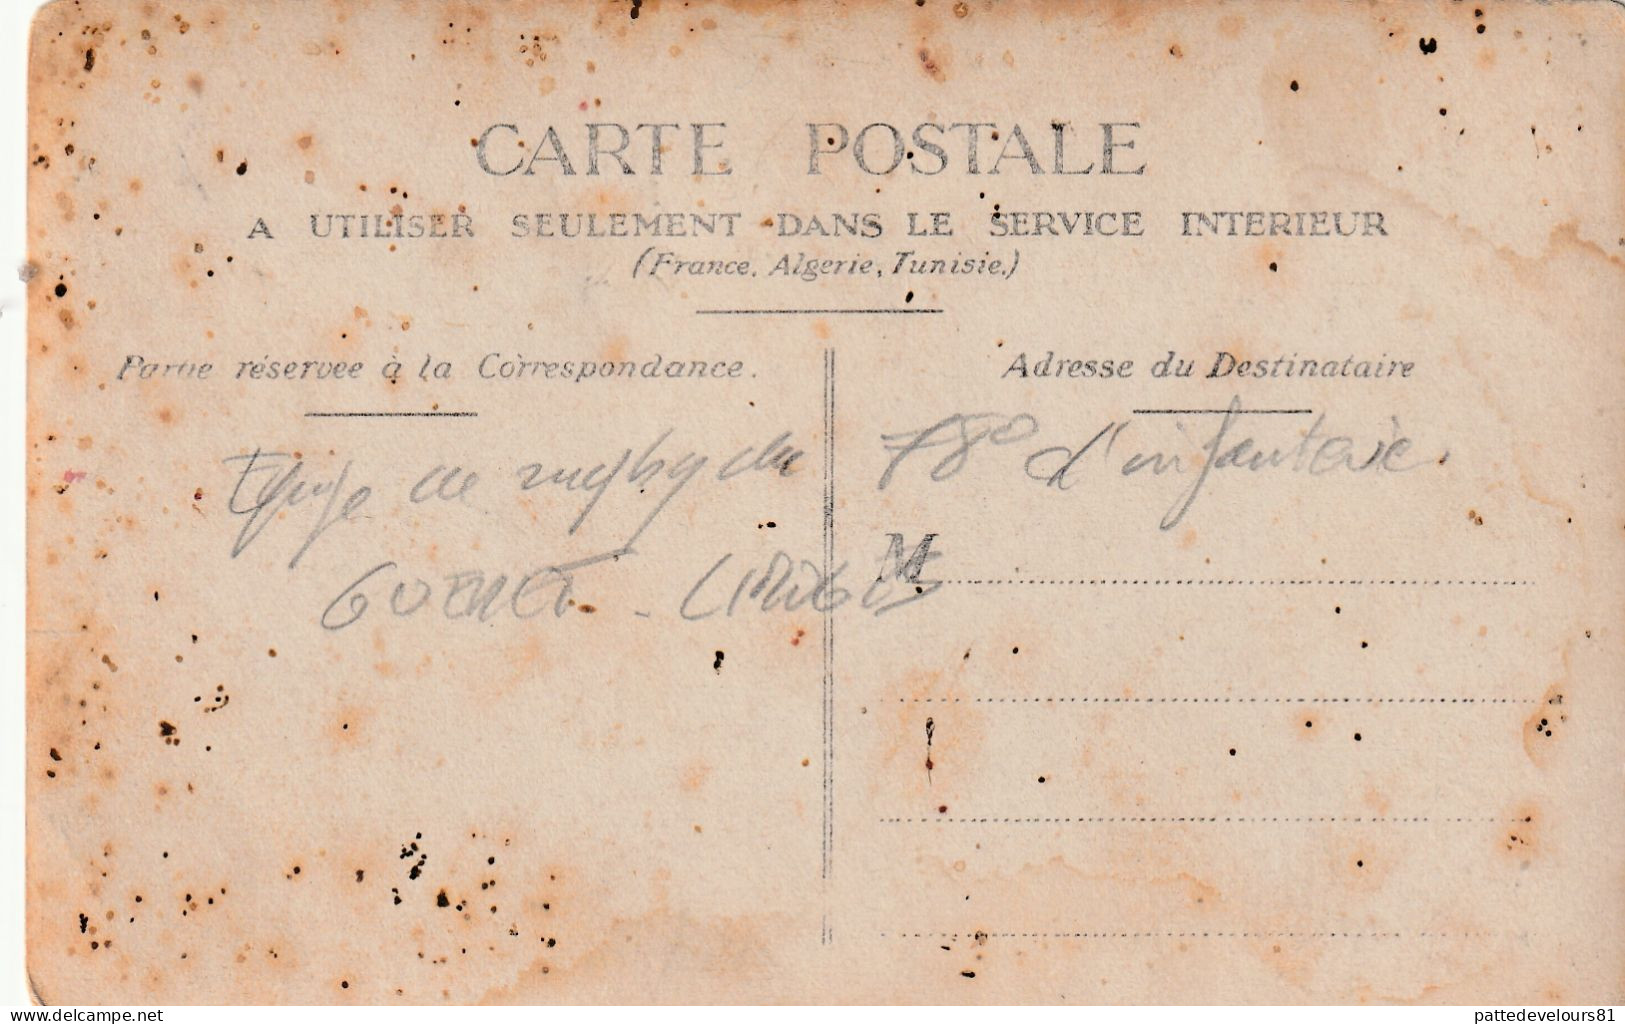 CARTE POSTALE
A UTILISER SEULEMENT DANS LE SERVICE INTERIEUR
(France, Algerie, Tunisie.)
Partie réservee à la Correspondance.
Adresse du Destinataire
Equipe de rugby du 78° d'infanterie.
GUERET - LIMOGES
M
www.delcampe.net
pattedevelours81